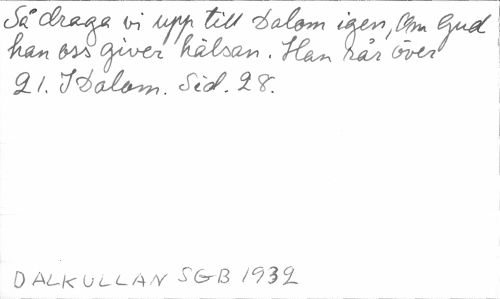 Så draga vi upp till Dalom igen, Om Gud
han oss giver hälsan. Han rår över
21. I Dalom. Sid. 28.
DALKULLAN SGB 1932